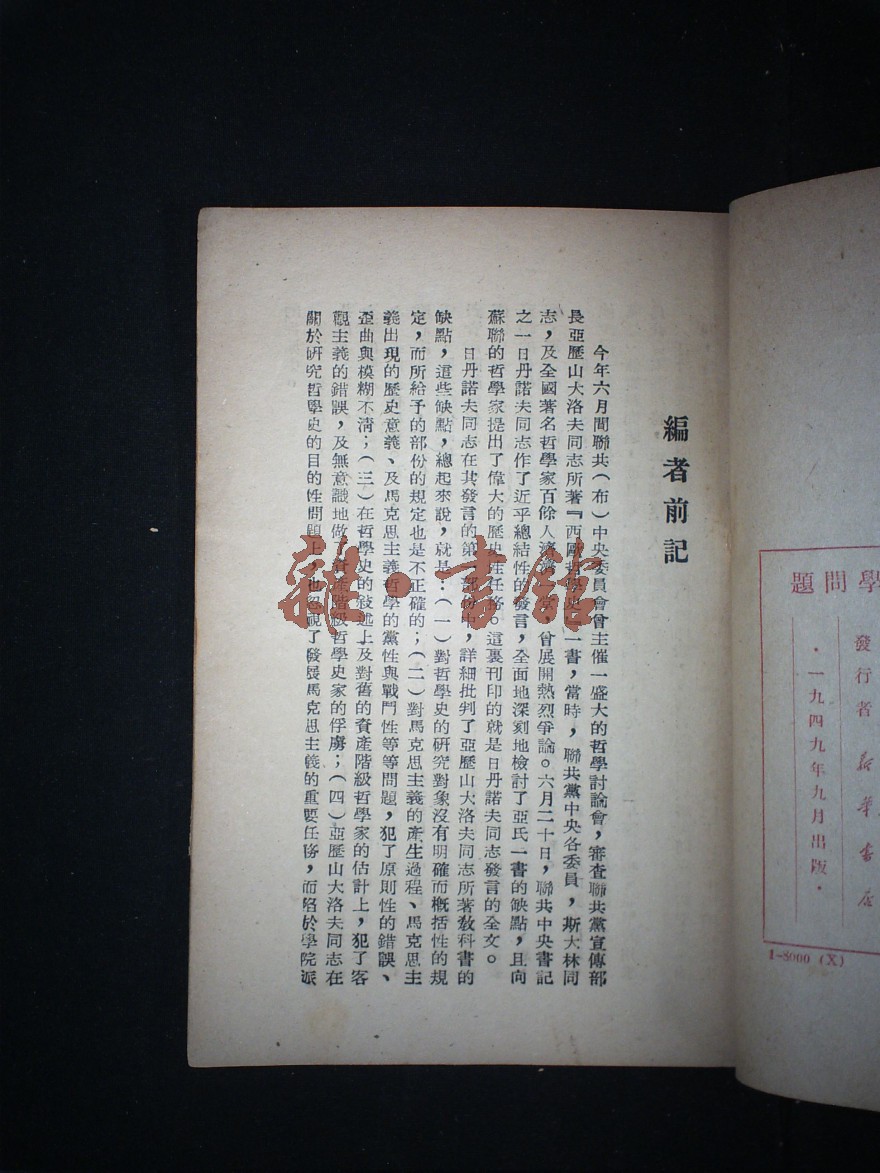 編者前記
今年六月間聯共（布）中央委員會曾主催一盛大的哲學討論會，審查聯共黨宣傳部
長亞歷山大洛夫同志所著『西歐哲學史』一書，當時，聯共黨中央各委員，斯大林同
志，及全國著名哲學家百餘人濟濟一堂，曾展開熱烈爭論。六月二十日，聯共中央書記
之一日丹諾夫同志作了近乎總結性的發言，全面地深刻地檢討了亞氏一書的缺點，且向
蘇聯的哲學家提出了偉大的歷史性任務。這裏刊印的就是日丹諾夫同志發言的全文。
日丹諾夫同志在其發言的第一部份中，詳細批判了亞歷山大洛夫同志所著敎科書的
缺點，這些缺點，總起來說，就是：（一）對哲學史的研究對象沒有明確而概括性的規
定，而所給予的部份的規定也是不正確的；（二）對馬克思主義的產生過程、馬克思主
義出現的歷史意義、及馬克思主義哲學的黨性與戰鬥性等等問題，犯了原則性的錯誤、
歪曲與模糊不清；（三）在哲學史的敍述上及對舊的資產階級哲學家的估計上，犯了客
觀主義的錯誤，及無意識地做了資產階級哲學史家的俘虜；（四）亞歷山大洛夫同志在
關於研究哲學史的目的性問題上，也忽視了發展馬克思主義的重要任務，而陷於學院派
雜·書館
學問題
發行者 新華書店
·一九四九年九月出版·
1-8000（X）